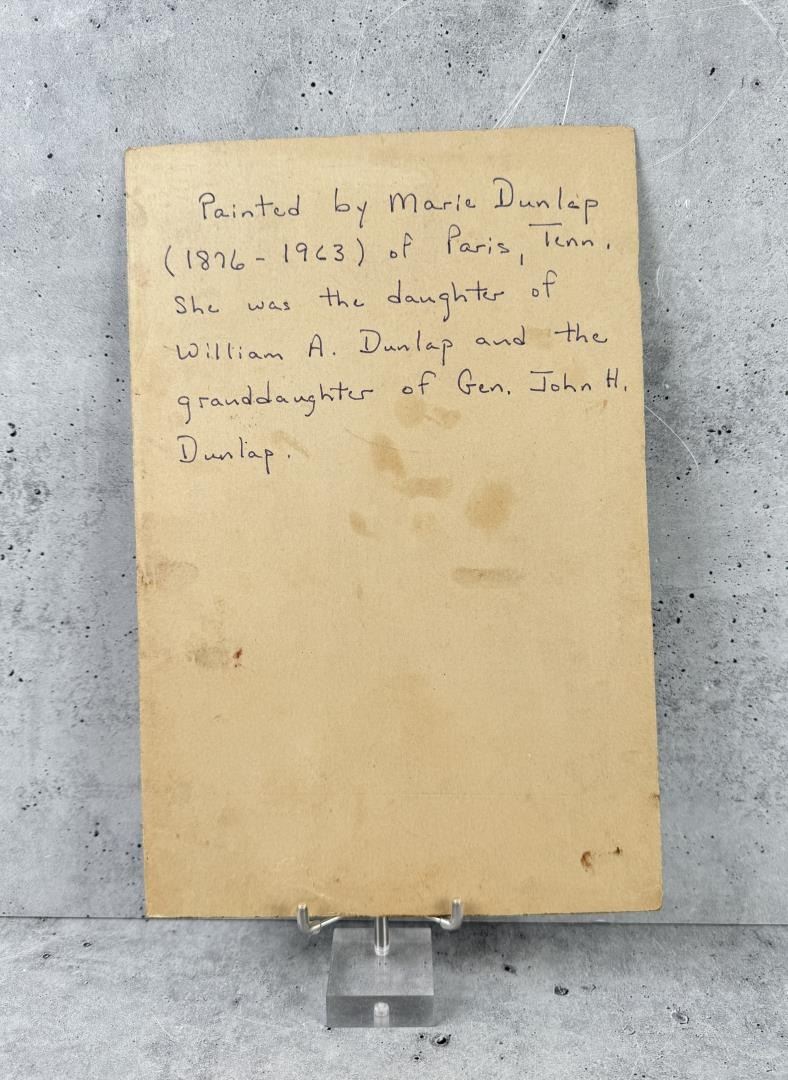 Painted by Marie Dunlap
(1876 - 1963) of Paris, Tenn.
She was the daughter of
William A. Dunlap and the
granddaughter of Gen. John H.
Dunlap.